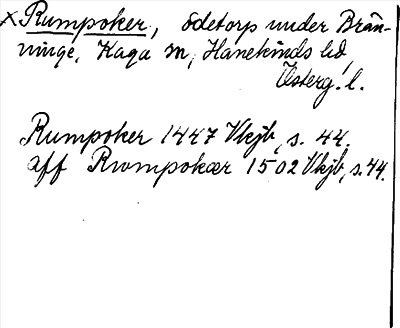 × Rumpoker, ödetorp under Brän-
ninge, Kaga sn, Hanekinds hd,
Österg:l.
Rumpoker 1447 Vkjb, s. 44.
aff Rwmpokær 1502 Vkjb, s. 44.